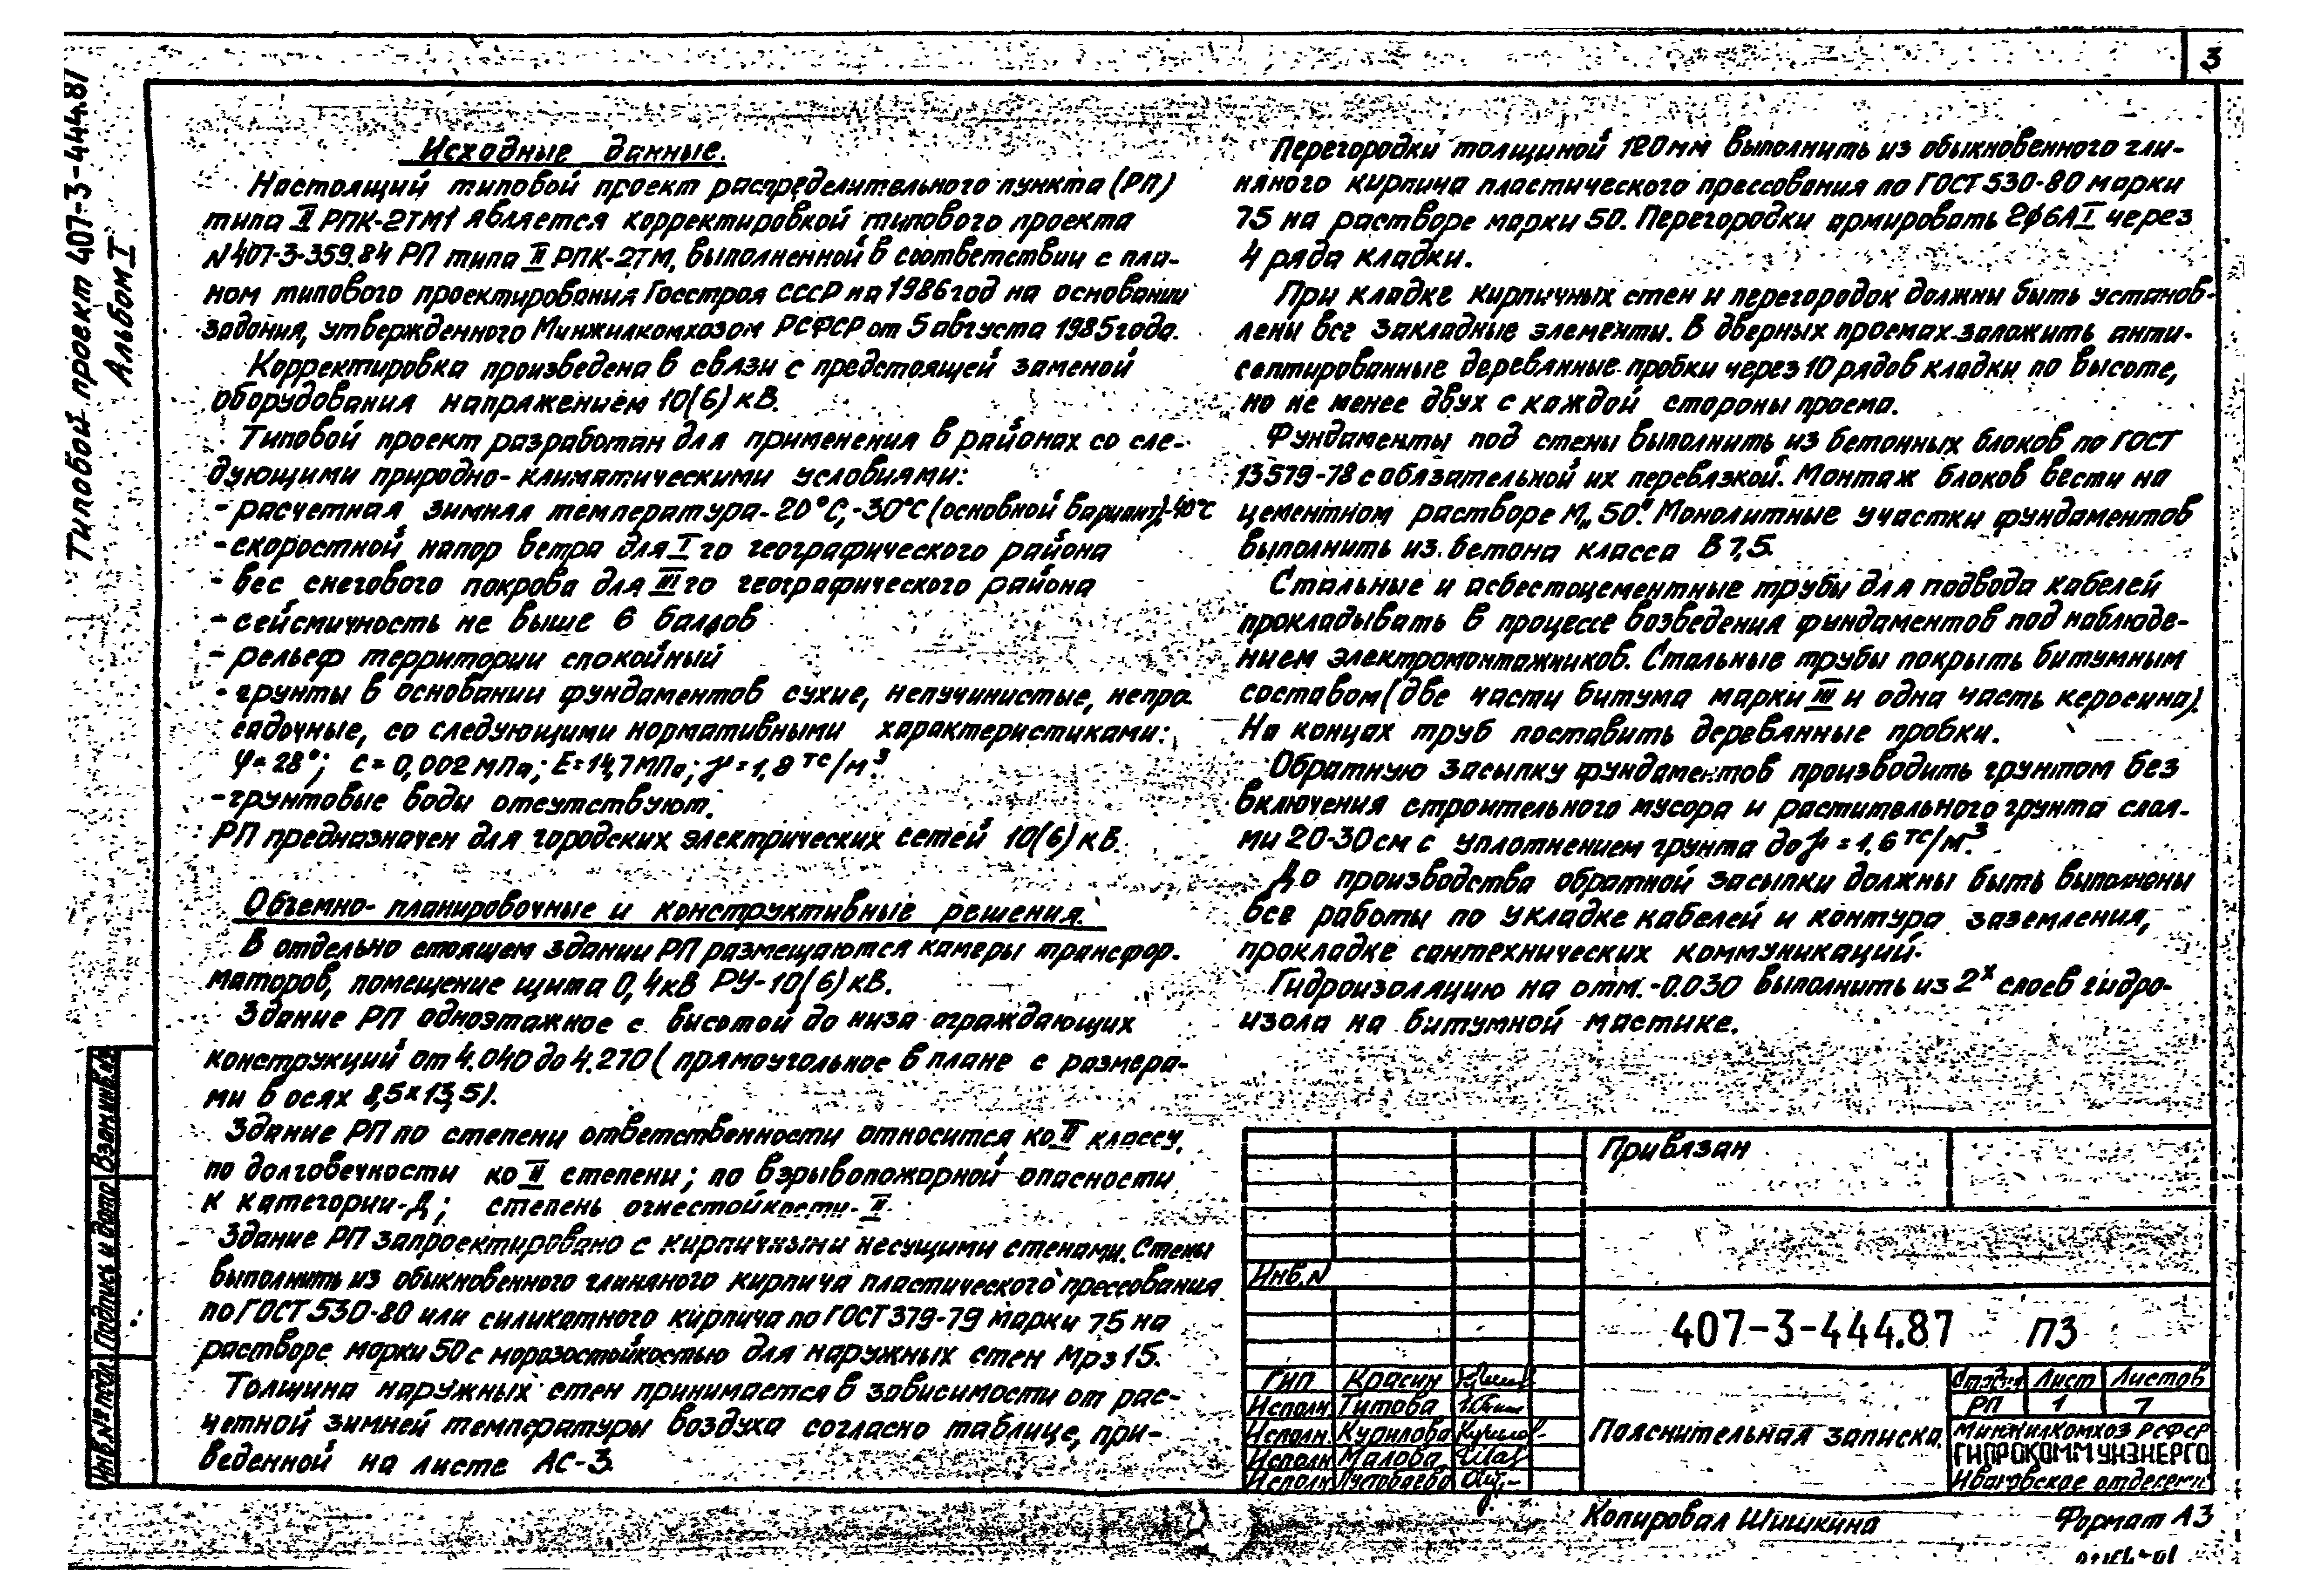 3
Типовой проект 407-3-444.87
Альбом I
Исходные данные.
Настоящий типовой проект распределительного пункта (РП)
типа II РПК-2ТМ1 является корректировкой типового проекта
N407-3-359.84 РП типа II РПК-2ТМ, выполненной в соответствии с пла-
ном типового проектирования Госстроя СССР на 1986 год на основании
задания, утвержденного Минжилкомхозом РСФСР от 5 августа 1985 года.
Корректировка произведена в связи с предстоящей заменой
оборудования напряжением 10(6) кВ.
Типовой проект разработан для применения в районах со сле-
дующими природно-климатическими условиями:
- расчетная зимняя температура-20°С,-30°С (основной вариант),-40°С
- скоростной напор ветра для I го географического района
- вес снегового покрова для III го географического района
- сейсмичность не выше 6 баллов
- рельеф территории спокойный
- грунты в основании фундаментов сухие, непучинистые, непро-
садочные, со следующими нормативными характеристиками:
φ=28°; с=0,002 МПа; Е=14,7 МПа; γ=1,8 тс/м³
- грунтовые воды отсутствуют.
РП предназначен для городских электрических сетей 10(6) кВ.
Объемно-планировочные и конструктивные решения.
В отдельно стоящем здании РП размещаются камеры трансфор-
маторов, помещение щита 0,4кВ РУ-10(6) кВ.
Здание РП одноэтажное с высотой до низа ограждающих
конструкций от 4.040 до 4.270 (прямоугольное в плане с размера-
ми в осях 8,5×13,5).
Здание РП по степени ответственности относится ко II классу,
по долговечности ко II степени; по взрывопожарной опасности
к категории-Д; степень огнестойкости-II.
Здание РП запроектировано с кирпичными несущими стенами. Стены
выполнить из обыкновенного глиняного кирпича пластического прессования
по ГОСТ 530-80 или силикатного кирпича по ГОСТ 379-79 марки 75 на
растворе марки 50 с морозостойкостью для наружных стен Мрз 15.
Толщина наружных стен принимается в зависимости от рас-
четной зимней температуры воздуха согласно таблице, при-
веденной на листе АС-3.
Перегородки толщиной 120 мм выполнить из обыкновенного гли-
няного кирпича пластического прессования по ГОСТ 530-80 марки
75 на растворе марки 50. Перегородки армировать 2φ6АI через
4 ряда кладки.
При кладке кирпичных стен и перегородок должны быть установ-
лены все закладные элементы. В дверных проемах заложить анти-
септированные деревянные пробки через 10 рядов кладки по высоте,
но не менее двух с каждой стороны проема.
Фундаменты под стены выполнить из бетонных блоков по ГОСТ
13579-78 с обязательной их перевязкой. Монтаж блоков вести на
цементном растворе М„50". Монолитные участки фундаментов
выполнить из бетона класса В 7,5.
Стальные и асбестоцементные трубы для подвода кабелей
прокладывать в процессе возведения фундаментов под наблюде-
нием электромонтажников. Стальные трубы покрыть битумным
составом (две части битума марки III и одна часть керосина).
На концах труб поставить деревянные пробки.
Обратную засыпку фундаментов производить грунтом без
включения строительного мусора и растительного грунта слоя-
ми 20-30 см с уплотнением грунта до γ=1,6 тс/м³.
До производства обратной засыпки должны быть выполнены
все работы по укладке кабелей и контура заземления,
прокладке сантехнических коммуникаций.
Гидроизоляцию на отм.-0.030 выполнить из 2х слоев гидро-
изола на битумной мастике.
Взам.инв.№
Подпись и дата
Инв.№ подл.
Привязан
Инв.N
407-3-444.87 ПЗ
Гип Красин
Исполн Титова
Исполн. Курилова
Исполн Малова
Исполн Пустоваева
Пояснительная записка.
Стадия Лист Листов
РП 1 7
Минжилкомхоз РСФСР
ГИПРОКОММУНЭНЕРГО
Ивановское отделение
Копировал Шишкина
Формат А3